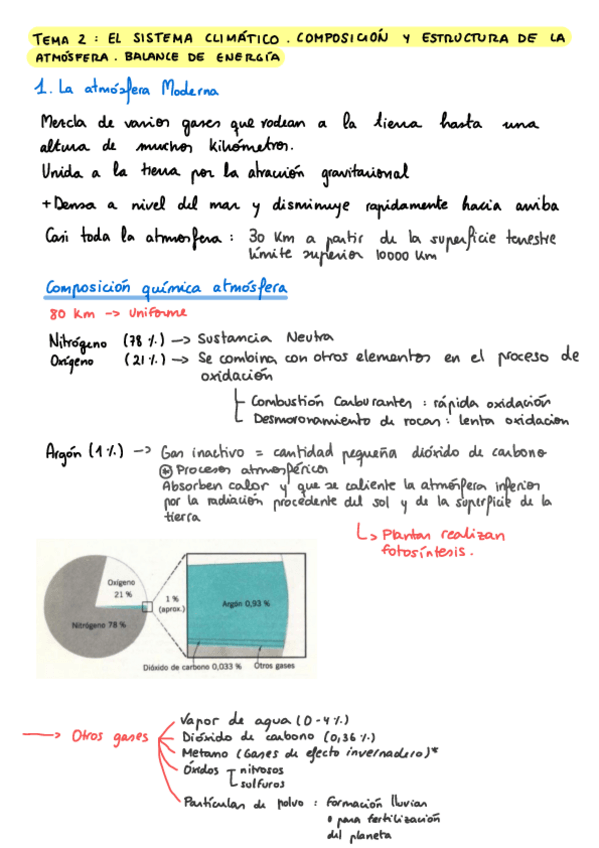 TEMA 2 : EL SISTEMA CLIMÁTICO . COMPOSICIÓN Y ESTRUCTURA DE LA
ATMÓSFERA . BALANCE DE ENERGÍA
1. La atmósfera Moderna
Mezcla de varios gases que rodean a la tierra hasta una
altura de muchos kilómetros.
Unida a la tierra por la atracción gravitacional
+ Densa a nivel del mar y disminuye rapidamente hacia arriba
Casi toda la atmosfera : 30 Km a partir de la superficie terrestre
límite superior 10000 Km
Composición química atmósfera
80 Km -> Uniforme
Nitrógeno (78 %) -> Sustancia Neutra
Oxígeno (21 %) -> Se combina con otros elementos en el proceso de
oxidación
Combustión Carburantes : rápida oxidación
Desmoronamiento de rocas : lenta oxidacion
Argón (1 %) -> Gas inactivo = cantidad pequeña dióxido de carbono
+ Procesos atmosférico
Absorben calor y que se caliente la atmósfera inferior
por la radiación procedente del sol y de la superficie de la
tierra
↳ Plantas realizan
fotosíntesis.
Oxígeno
21 %
Nitrógeno 78 %
1 %
(aprox.)
Argón 0,93 %
Dióxido de carbono 0,033 %
Otros gases
-> Otros gases
Vapor de agua (0 - 4 %)
Dióxido de carbono (0,36 %)
Metano (Gases de efecto invernadero)*
Óxidos nitrosos
sulfuros
Partículas de polvo : formación lluvias
o para fertilización
del planeta